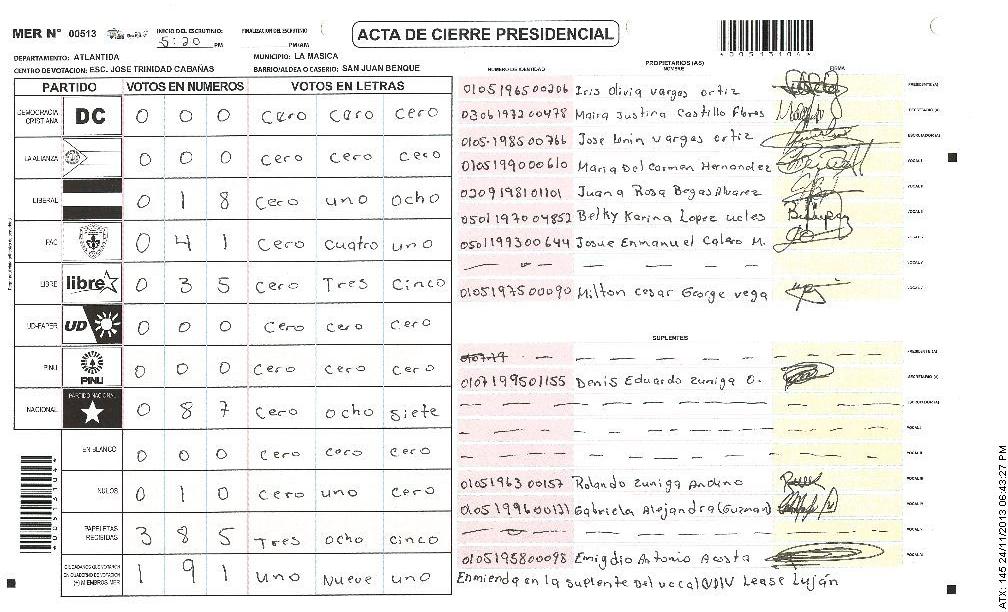 MER N° 00513
INICIO DEL ESCRUTINIO 5:20 PM
FINALIZACION DEL ESCRUTINIO PM/AM
ACTA DE CIERRE PRESIDENCIAL
DEPARTAMENTO: ATLANTIDA MUNICIPIO: LA MASICA
CENTRO DE VOTACION: ESC. JOSE TRINIDAD CABAÑAS BARRIO/ALDEA O CASERIO: SAN JUAN BENQUE
PARTIDO VOTOS EN NUMEROS VOTOS EN LETRAS
DEMOCRACIA CRISTIANA DC 0 0 0 Cero Cero Cero
LA ALIANZA 0 0 0 Cero Cero Cero
LIBERAL 0 1 8 Cero uno ocho
PAC 0 4 1 Cero Cuatro uno
LIBRE libre 0 3 5 Cero Tres Cinco
UD-FAPER UD 0 0 0 Cero Cero Cero
PINU PINU 0 0 0 Cero Cero Cero
NACIONAL PARTIDO NACIONAL 0 8 7 Cero ocho siete
EN BLANCO 0 0 0 Cero Cero Cero
NULOS 0 1 0 Cero uno Cero
PAPELETAS RECIBIDAS 3 8 5 Tres ocho cinco
CIUDADANOS QUE VOTARON EN CUADERNO DE VOTACION (+) MIEMBROS MER 1 9 1 uno Nueve uno
PROPIETARIOS (AS)
NUMERO DE IDENTIDAD NOMBRE FIRMA
0105196500206 Iris Olivia Vargas ortiz PRESIDENTE (A)
0306197200478 Maira Justina Castillo Flores SECRETARIO (A)
0105-198500766 Jose Lenin Vargas ortiz ESCRUTADOR (A)
0105199000610 Maria Del Carmen Hernandez VOCAL I
0209198101101 Juana Rosa Begas Alvarez VOCAL II
0501197004852 Belky Karina Lopez ucles VOCAL III
0501199300644 Josue Enmanuel Calero M.
0105197500090 Milton Cesar George Vega
SUPLENTES
PRESIDENTE (A)
0107199501155 Denis Eduardo Zuniga O. SECRETARIO (A)
ESCRUTADOR (A)
VOCAL I
VOCAL II
0105196300157 Rolando Zuniga Andino VOCAL III
0105199600131 Gabriela Alejandra (Guzman) VOCAL IV
VOCAL V
0105195800098 Emigdio Antonio Acosta
Enmienda en la suplente del vocal IV Lease Luján
ATX-145 24/11/2013 06:43:27 PM